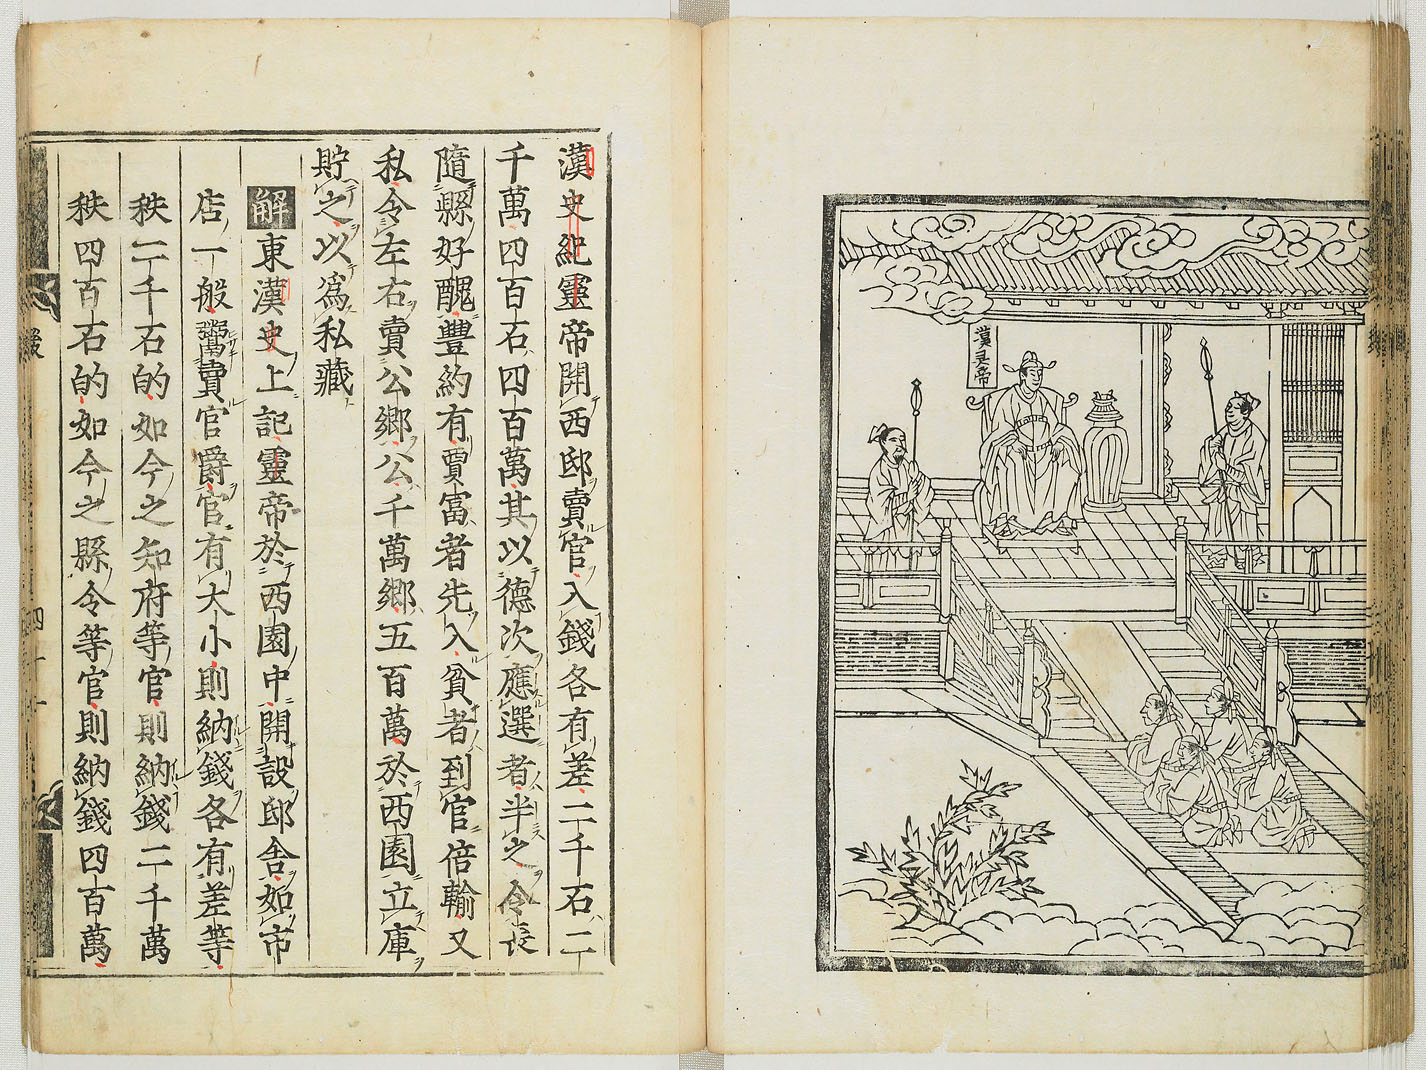 漢灵帝
漢史紀靈帝開西邸賣官入錢各有差二千石二
千萬四百石四百萬其以德次應選者半之令長
隨縣好醜豐約有賈富者先入貧者到官倍輸又
私令左右賣公鄉公千萬鄉五百萬於西園立庫
貯之以爲私藏
解東漢史上記靈帝於西園中開設邸舎如市
店一般鬻賣官爵官有大小則納錢各有差等
秩二千石的如今之知府等官則納錢二千萬
秩四百石的如今之縣令等官則納錢四百萬
四十一